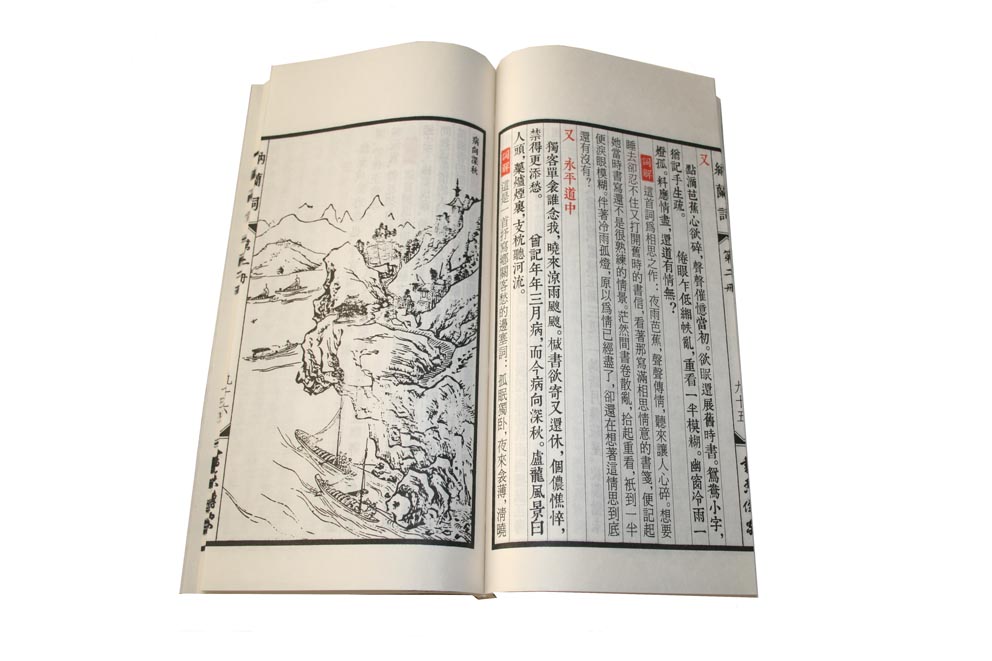 納蘭詞 第二冊 九十五
又
點滴芭蕉心欲碎，聲聲催憶當初。欲眠還展舊時書。鴛鴦小字，
猶記手生疏。 倦眼乍低緗帙亂，重看一半模糊。幽窗冷雨一
燈孤。料應情盡，還道有情無？
詞解 這首詞爲相思之作：夜雨芭蕉，聲聲傳情，聽來讓人心碎。想要
睡去卻忍不住又打開舊時的書信，看著那寫滿相思情意的書箋，便記起
她當時書寫還不是很熟練的情景。茫然間書卷散亂，拾起重看，衹到一半
便淚眼模糊。伴著冷雨孤燈，原以爲情已經盡了，卻還在想著這情思到底
還有沒有？
又 永平道中
獨客單衾誰念我，曉來涼雨颼颼。緘書欲寄又還休，個儂憔悴，
禁得更添愁。 曾記年年三月病，而今病向深秋。盧龍風景白
人頭，藥爐煙裏，支枕聽河流。
詞解 這是一首抒寫鄉關客愁的邊塞詞：孤眠獨卧，夜來衾薄，清曉
病向深秋
納蘭詞 第二冊 九十六